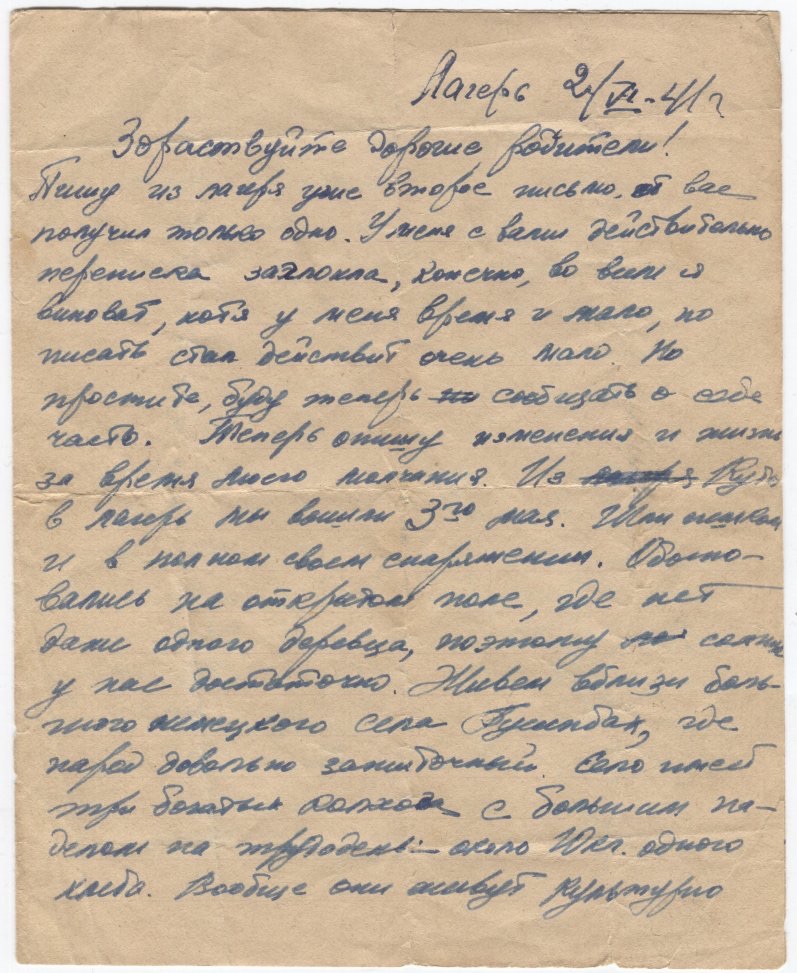 Лагерь 2/VI-41 г.
Здраствуйте дорогие родители!
Пишу из лагеря уже второе письмо, от вас
получил только одно. У меня с вами действительно
переписка заглохла, конечно, во всем я
виноват, хотя у меня время и мало, но
писать стал действит очень мало. Но
простите, буду теперь сообщать о себе
часто. Теперь опишу изменения и жизнь
за время моего молчания. Из
в лагерь мы вышли 3го мая. Шли пешком
и в полном своем снаряжении. Обосно-
вались на открытом поле, где нет
даже одного деревца, поэтому солнца
у нас достаточно. Живем вблизи боль-
шого немецкого села, где
народ довольно зажиточный. Село имеет
три богатых колхоза с большим на-
делом на трудодень: около 10 кг. одного
хлеба. Вообще они живут культурно